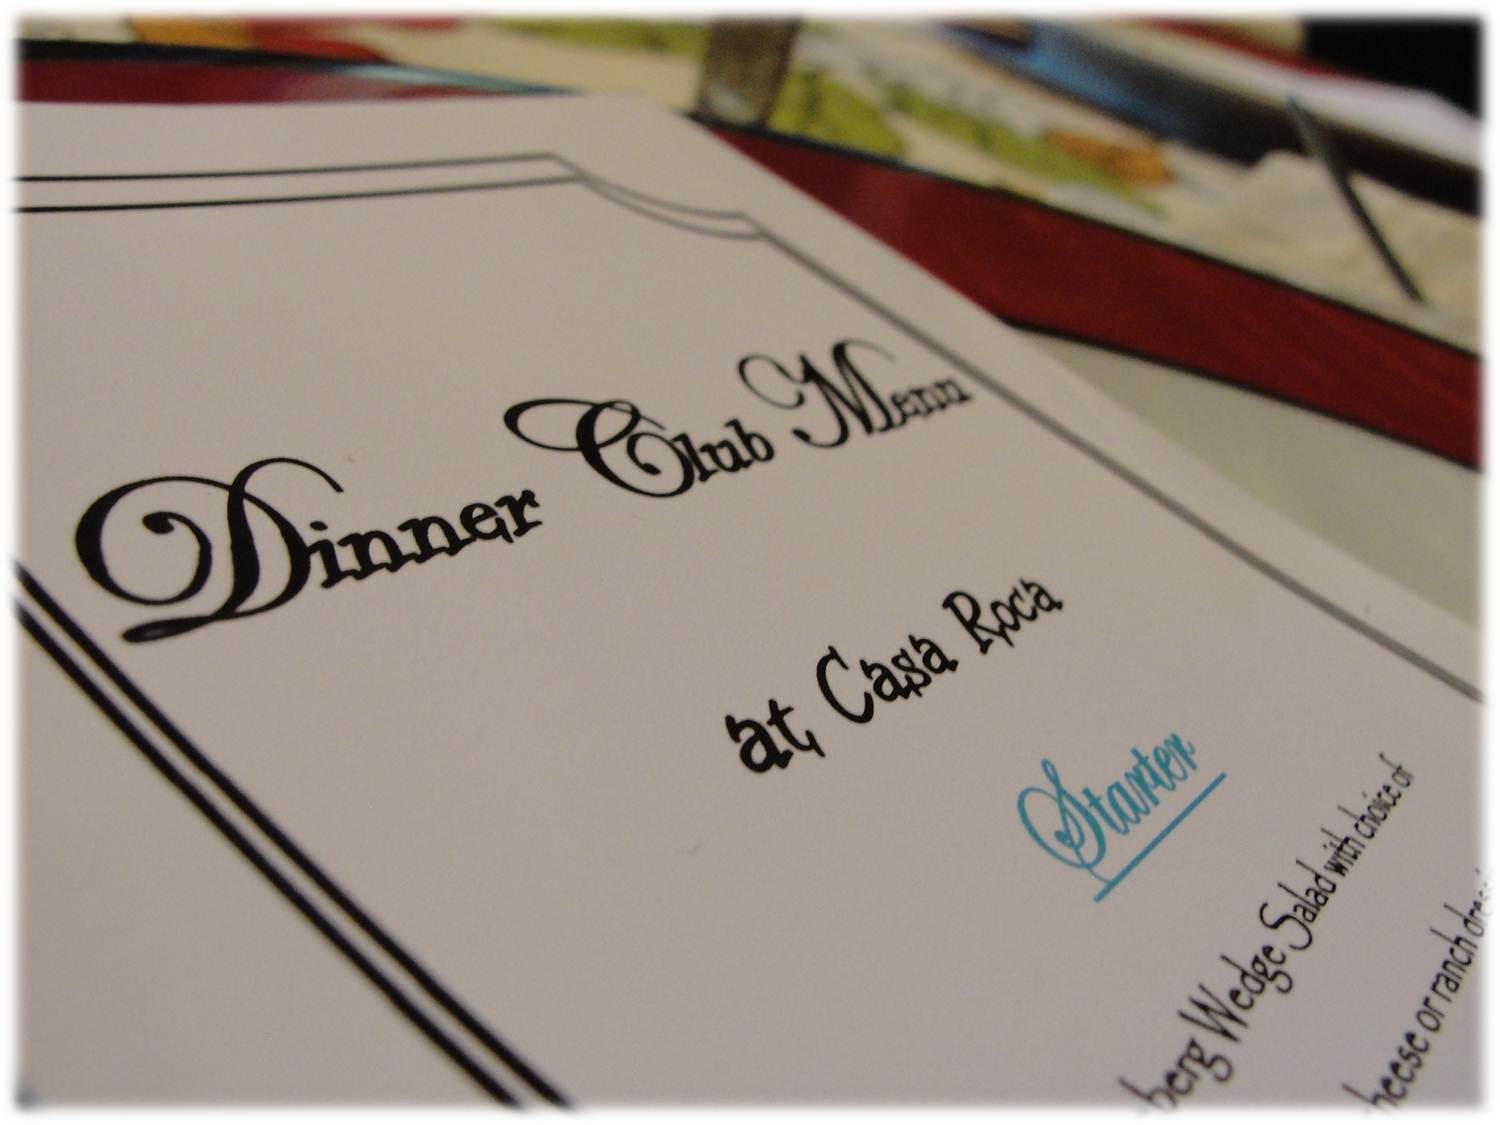 Dinner Club Menu
at Casa Roca
Starter
berg Wedge Salad with choice of
heese or ranch